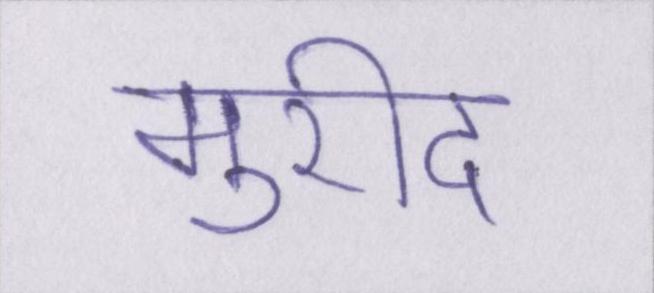 मुरीद